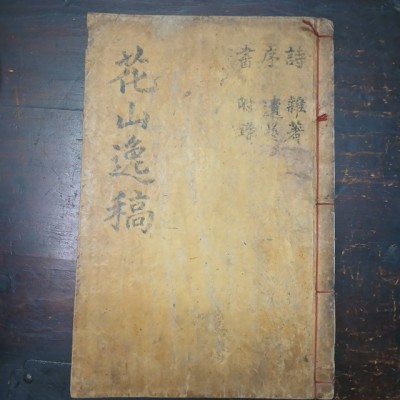 詩 雜著
序
書 附錄
花山逸稿